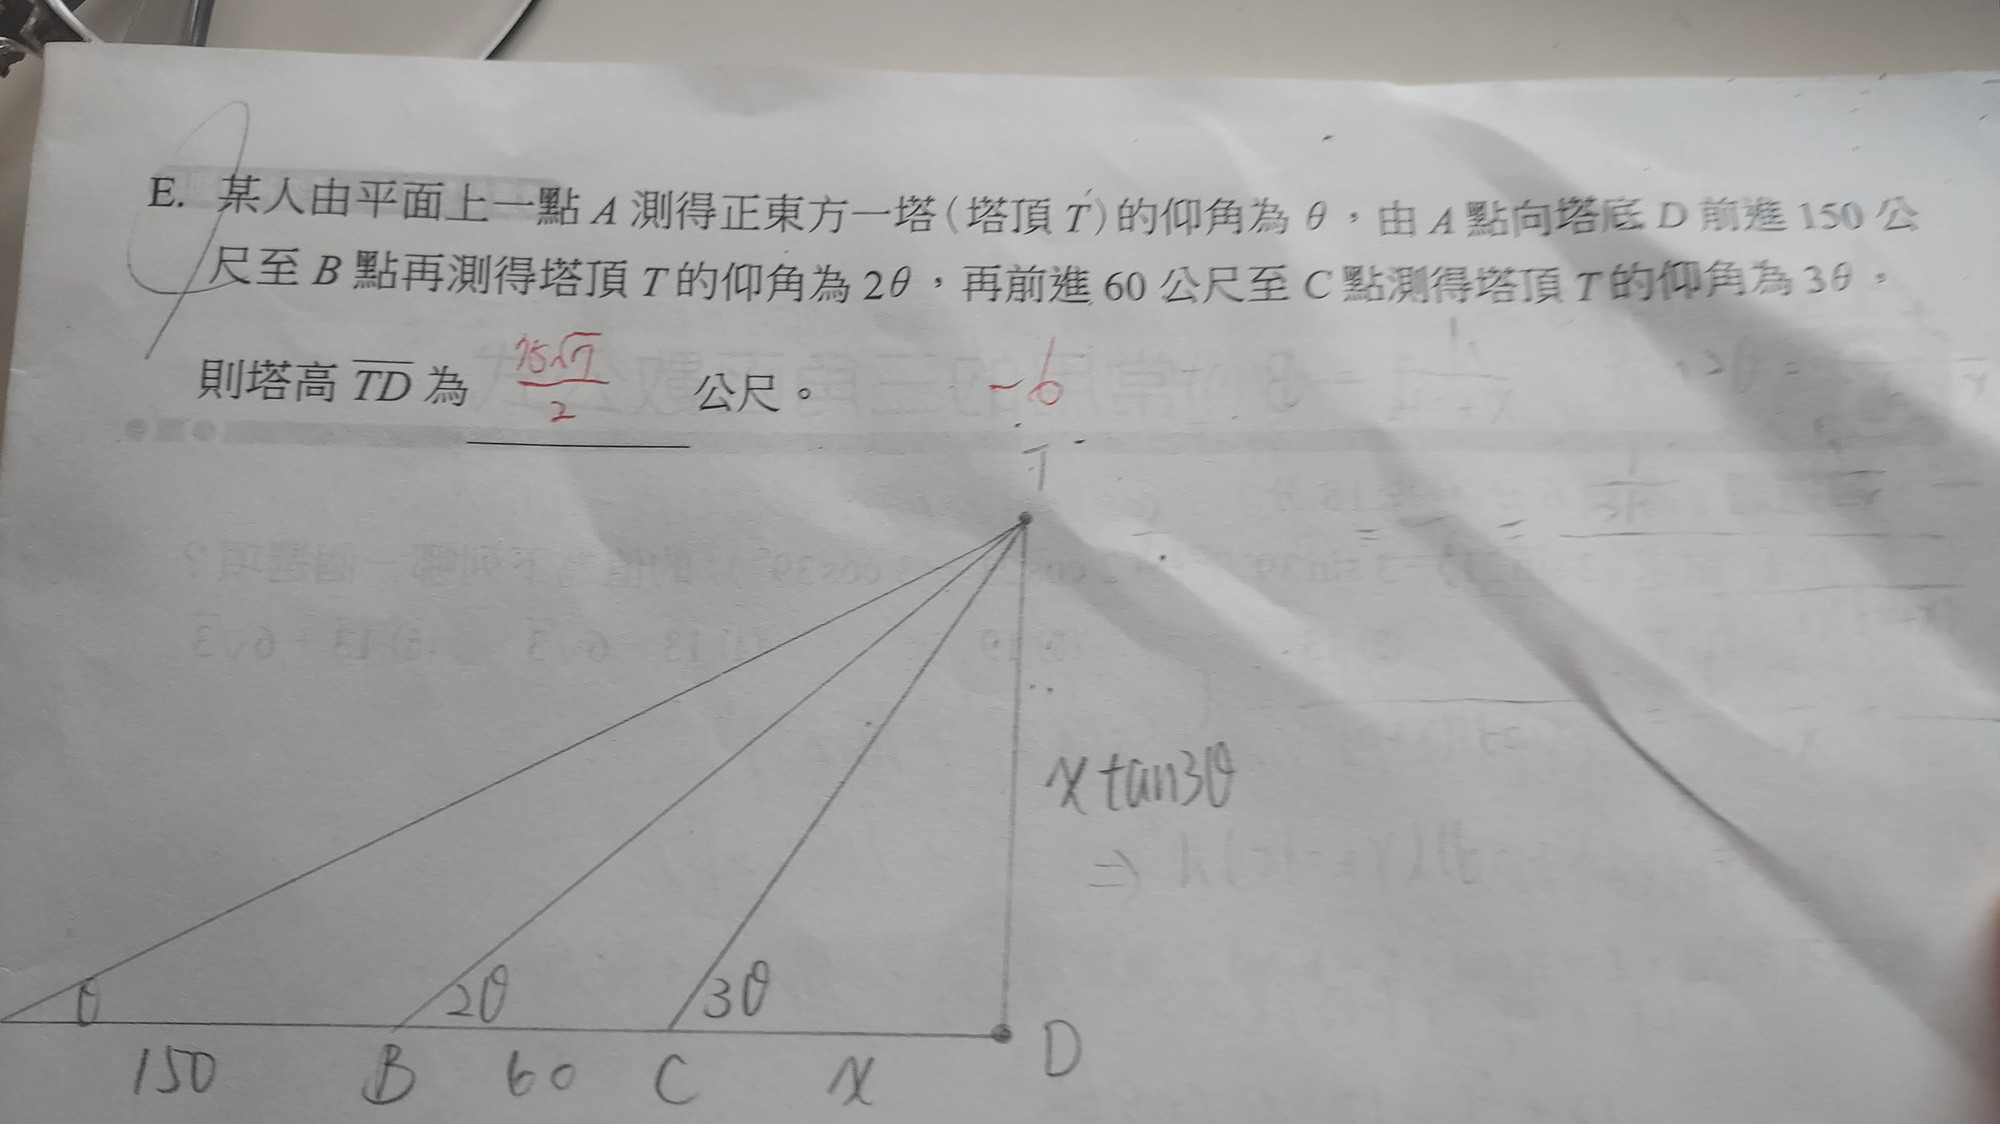 E. 某人由平面上一點 A 測得正東方一塔(塔頂 T)的仰角為 θ,由 A 點向塔底 D 前進 150 公
尺至 B 點再測得塔頂 T 的仰角為 2θ,再前進 60 公尺至 C 點測得塔頂 T 的仰角為 3θ,
則塔高 TD 為 75√7/2 公尺。 -6
T
x tan3θ
θ 2θ 3θ
150 B 60 C x D